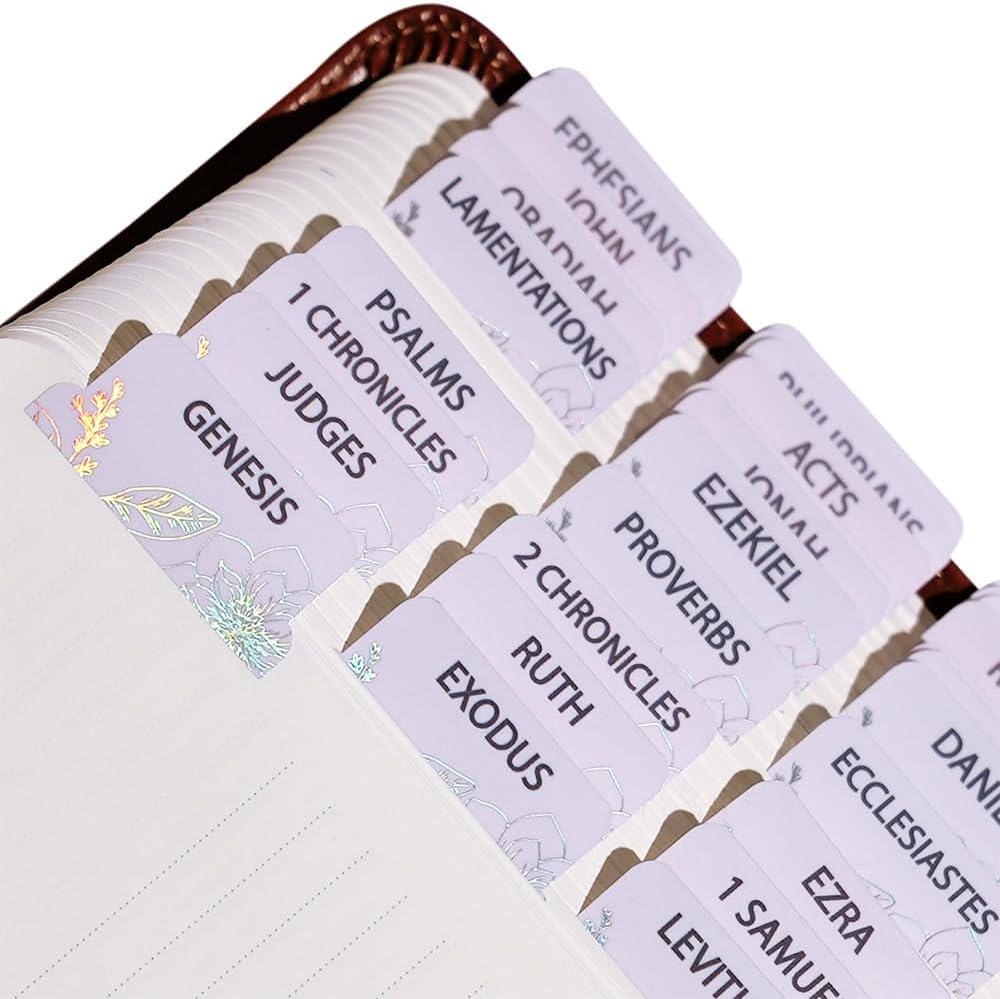 EPHESIANS
JOHN
OBADIAH
LAMENTATIONS
PSALMS
1 CHRONICLES
JUDGES
GENESIS
PHILIPPIANS
ACTS
JONAH
EZEKIEL
PROVERBS
2 CHRONICLES
RUTH
EXODUS
DANIE
ECCLESIASTES
EZRA
1 SAMUE
LEVITI